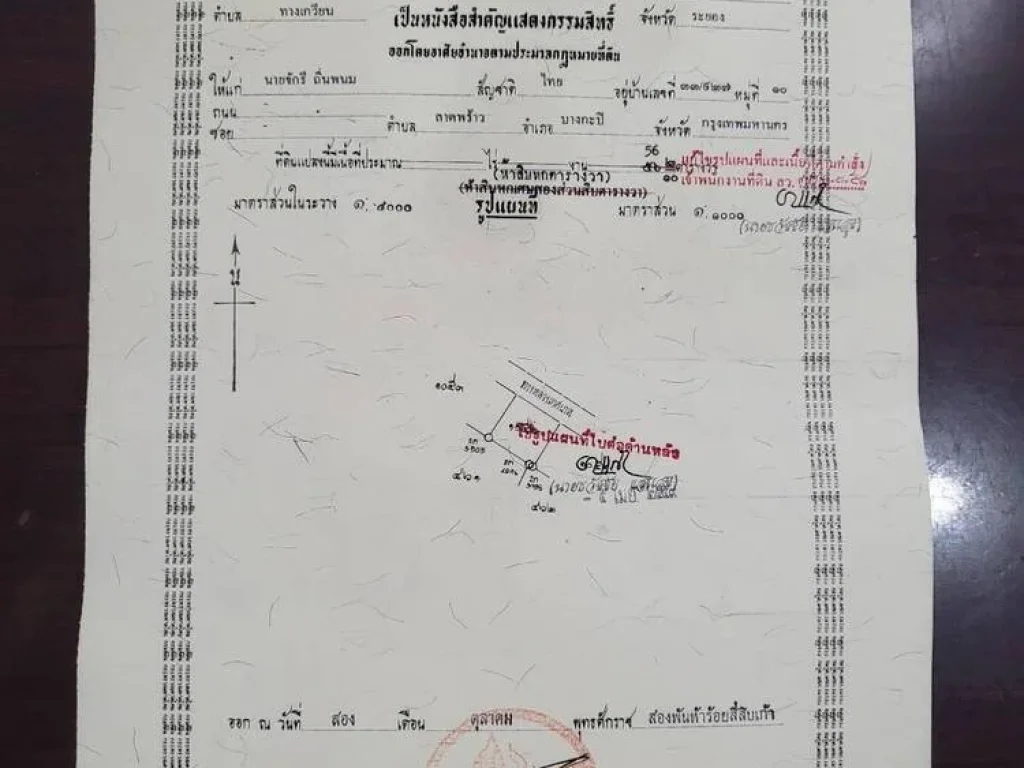 ตำบล ทางเกวียน
เป็นหนังสือสำคัญแสดงกรรมสิทธิ์ จังหวัด ระยอง
ออกโดยอาศัยอำนาจตามประมวลกฎหมายที่ดิน
ให้แก่ นายจักรี ถิ่นพนม สัญชาติ ไทย อยู่บ้านเลขที่ ๓๓/๕๒๗ หมู่ที่ ๑๐
ถนน
ซอย ตำบล ลาดพร้าว อำเภอ บางกะปิ จังหวัด กรุงเทพมหานคร
56
ที่ดินแปลงนี้มีเนื้อที่ประมาณ ไร่ งาน ๕๖ ๒ ตารางวา แก้ไขรูปแผนที่และเนื้อที่ตามคำสั่ง
(ห้าสิบหกตารางวา) ๑๐ เจ้าพนักงานที่ดิน ลว.
(ห้าสิบหกเศษสองส่วนสิบตารางวา)
มาตราส่วนในระวาง ๑: ๔๐๐๐ รูปแผนที่ มาตราส่วน ๑: ๑๐๐๐
น
๑๐๕๓
ทางหลวงเทศบาล
ใช้รูปแผนที่ใบต่อด้านหลัง
๔๖๑
๔๖๒
ออก ณ วันที่ สอง เดือน ตุลาคม พุทธศักราช สองพันห้าร้อยสี่สิบเก้า